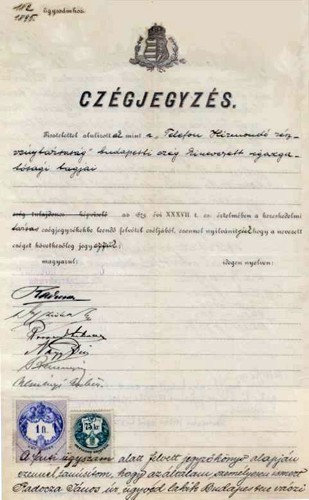 112
1895. ügyszámhoz.
CZÉGJEGYZÉS.
Tisztelettel alulirott ak mint a „Telefon Hirmondó rész-
vénytársaság" budapesti czég kinevezett igazga-
tósági tagjai
czég tulajdonos képviselő az 1875 évi XXXVII. t. cz. értelmében a kereskedelmi
társas czégjegyzékekbe leendő felvétel czéljából, ezennel nyilvánítjuk hogy a nevezett
czéget következőleg jegyezzük:
magyarul: idegen nyelven:
1 ft.
75 kr.
A fenti ügyszám alatt felvett jegyzőkönyv alapján
ezennel tanusitom, hogy az általam személyesen ismert
Radocza János úr ügyvéd lakik Budapesten